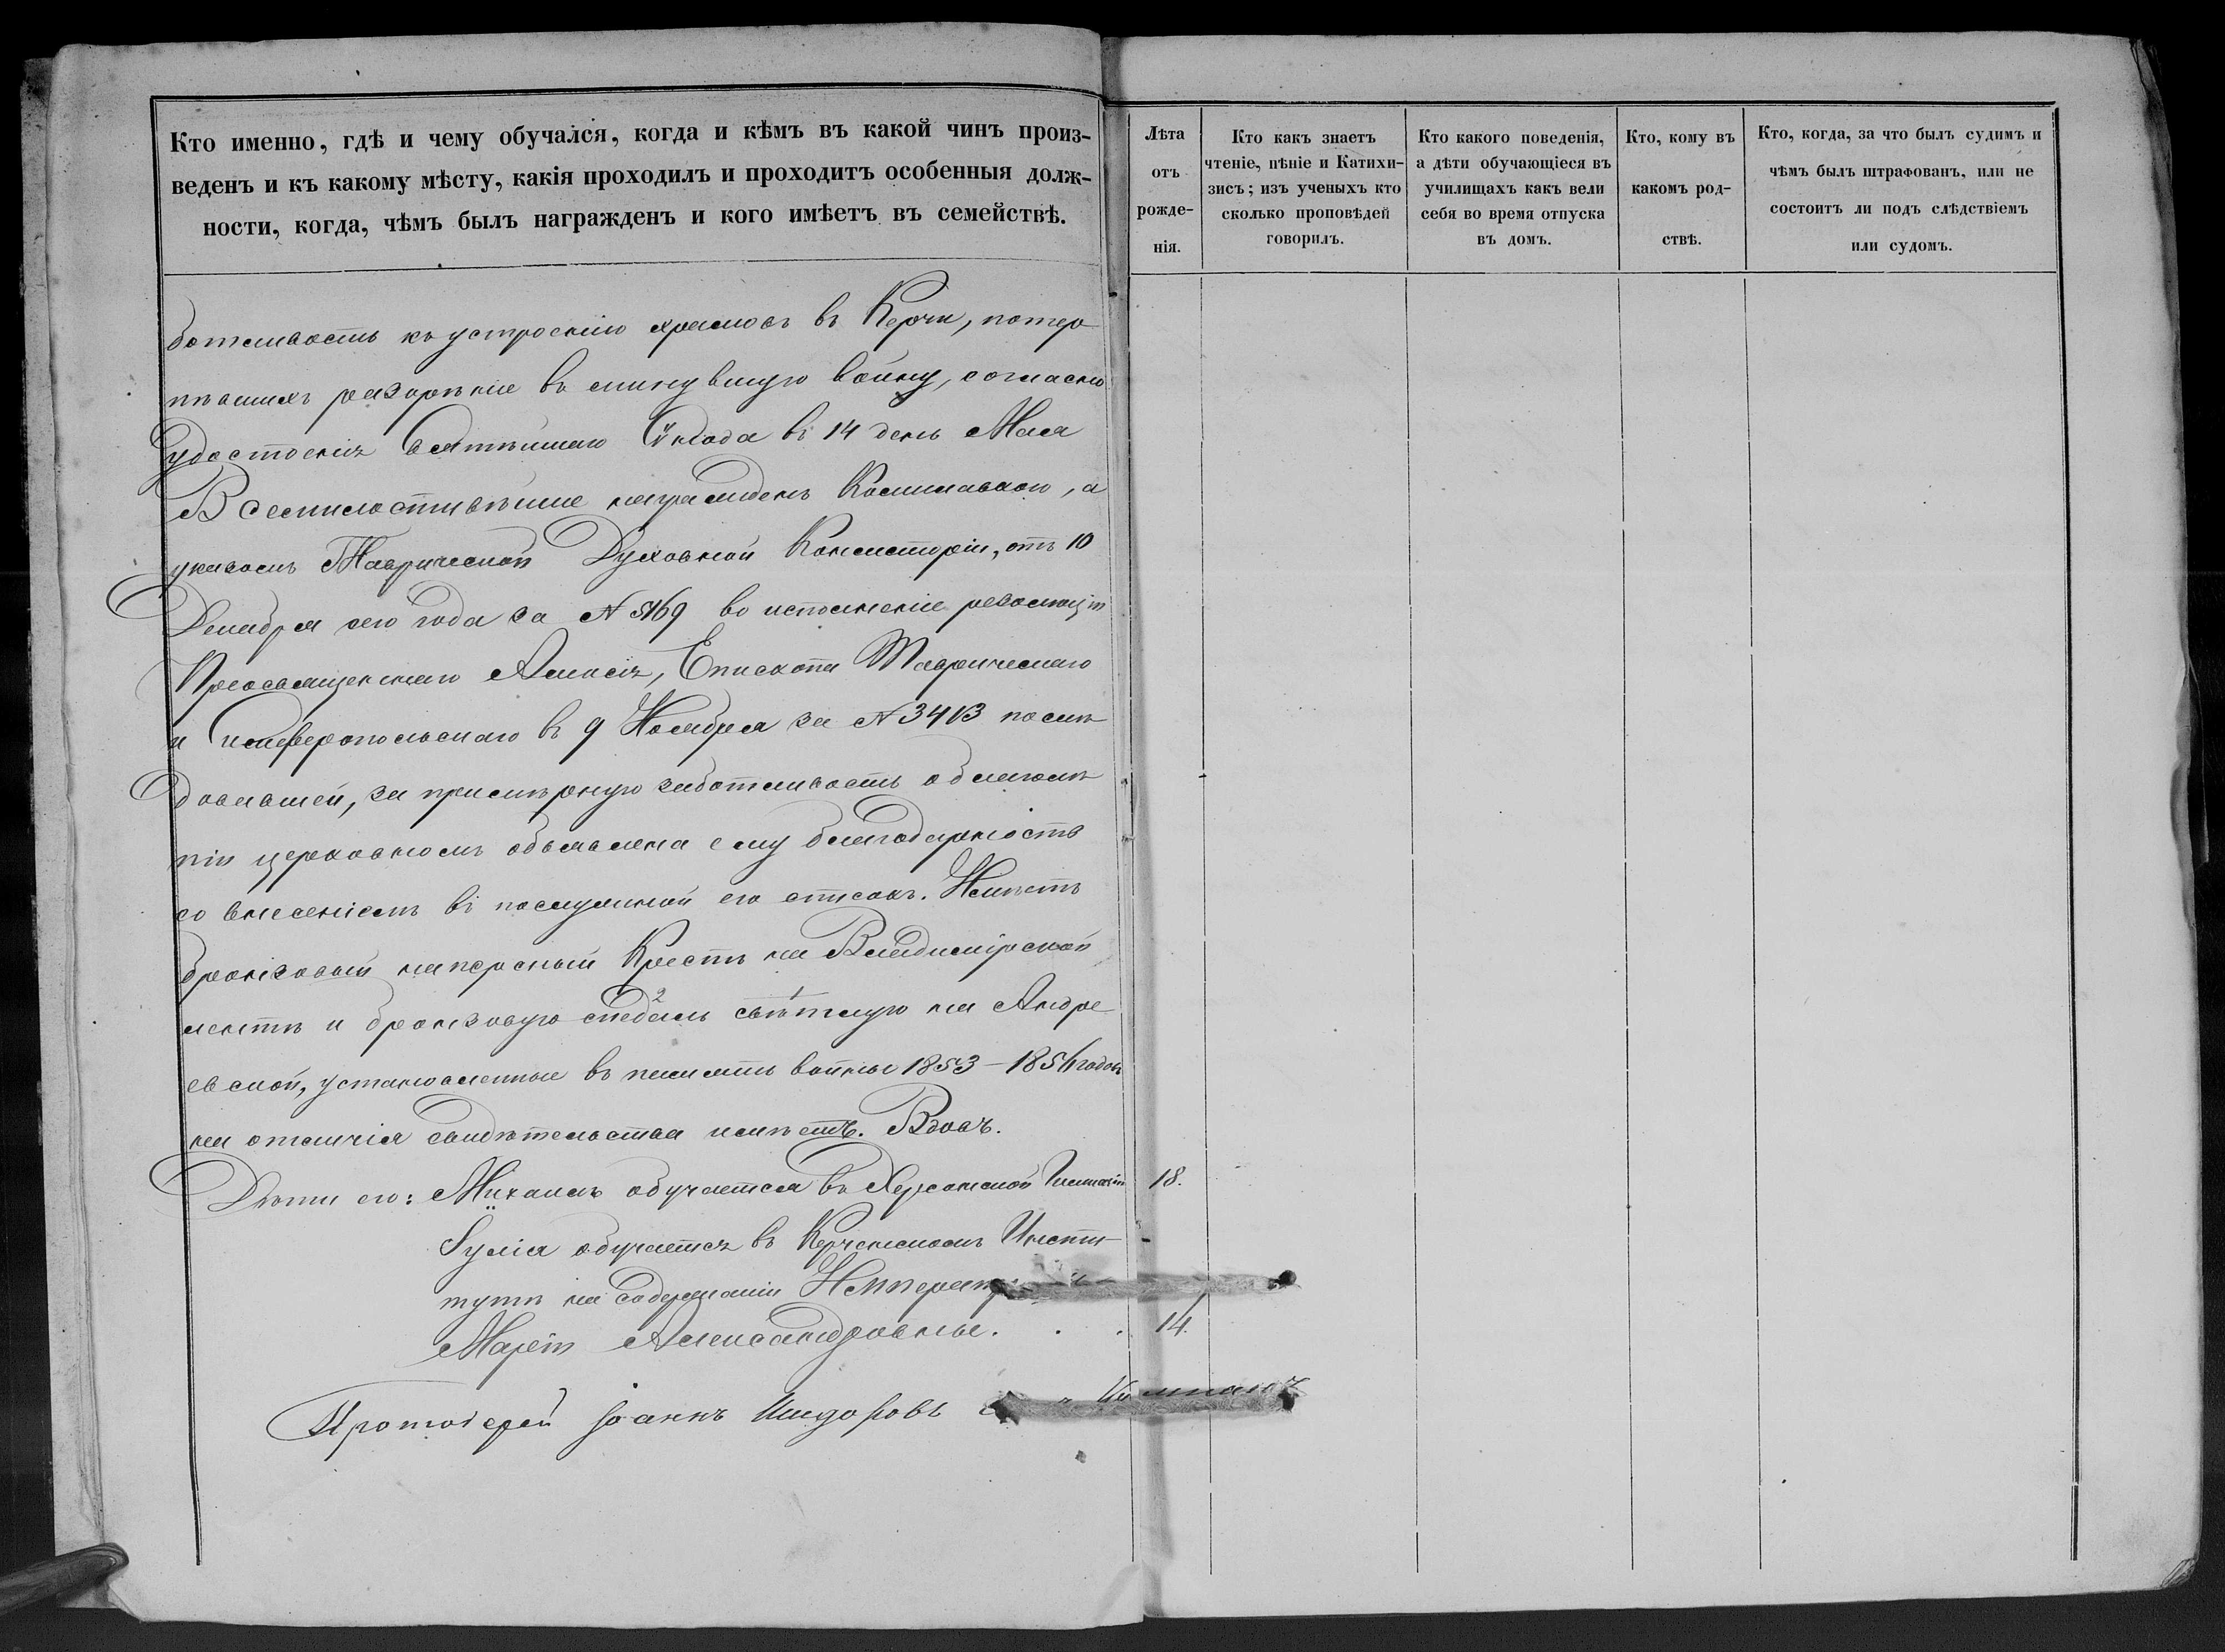 Кто именно, гдѣ и чему обучался, когда и кѣмъ въ какой чинъ произ-
веденъ и къ какому мѣсту, какія проходилъ и проходитъ особенныя долж-
ности, когда, чѣмъ былъ награжденъ и кого имѣетъ въ семействѣ.
Лѣта
отъ
рожде-
нія.
Кто какъ знаетъ
чтеніе, пѣніе и Катихи-
зисъ; изъ ученыхъ кто
сколько проповѣдей
говорилъ.
Кто какого поведенія,
а дѣти обучающіеся въ
училищахъ какъ вели
себя во время отпуска
въ домъ.
Кто, кому въ
какомъ род-
ствѣ.
Кто, когда, за что былъ судимъ и
чѣмъ былъ штрафованъ, или не
состоитъ ли подъ слѣдствіемъ
или судомъ.
ботливость къ устроенію храмовъ въ Керчи, потер
пѣвшихъ разорѣніе въ минувшую войну, согласно
удостоенія Святѣйшаго Сѵнода въ 14 день Мая
Всемилостивѣйше награжденъ Камилавкою, а
указомъ Таврической Духовной Консисторіи, отъ 10
Декабря сего года за N 5169 во исполненіе резолюціи
Преосвященнаго Алексія, Епископа Таврическаго
и Симферопольскаго въ 9 Ноября за N 3413 послѣ
довавшей, за примѣрную заботливость о благолѣ
піи церковномъ объявлена ему благодарность
со внесеніемъ въ послужной его списокъ. Имѣетъ
бронзовый наперсный Крестъ на Владимірской
лентѣ и бронзовую медаль свѣтлую на Андре
евской, установленные въ память войны 1853–1856 годовъ
на отличія свидѣтельства имѣетъ. Вдовъ.
Дѣти его: Михаилъ обучается въ Херсонской Гимназіи 18.
Іулія обучается въ Керченскомъ Инсти-
тутѣ на содержаніи
Маріи Александровны. . . 14.
Протоіерей Іоаннъ Сидоровъ